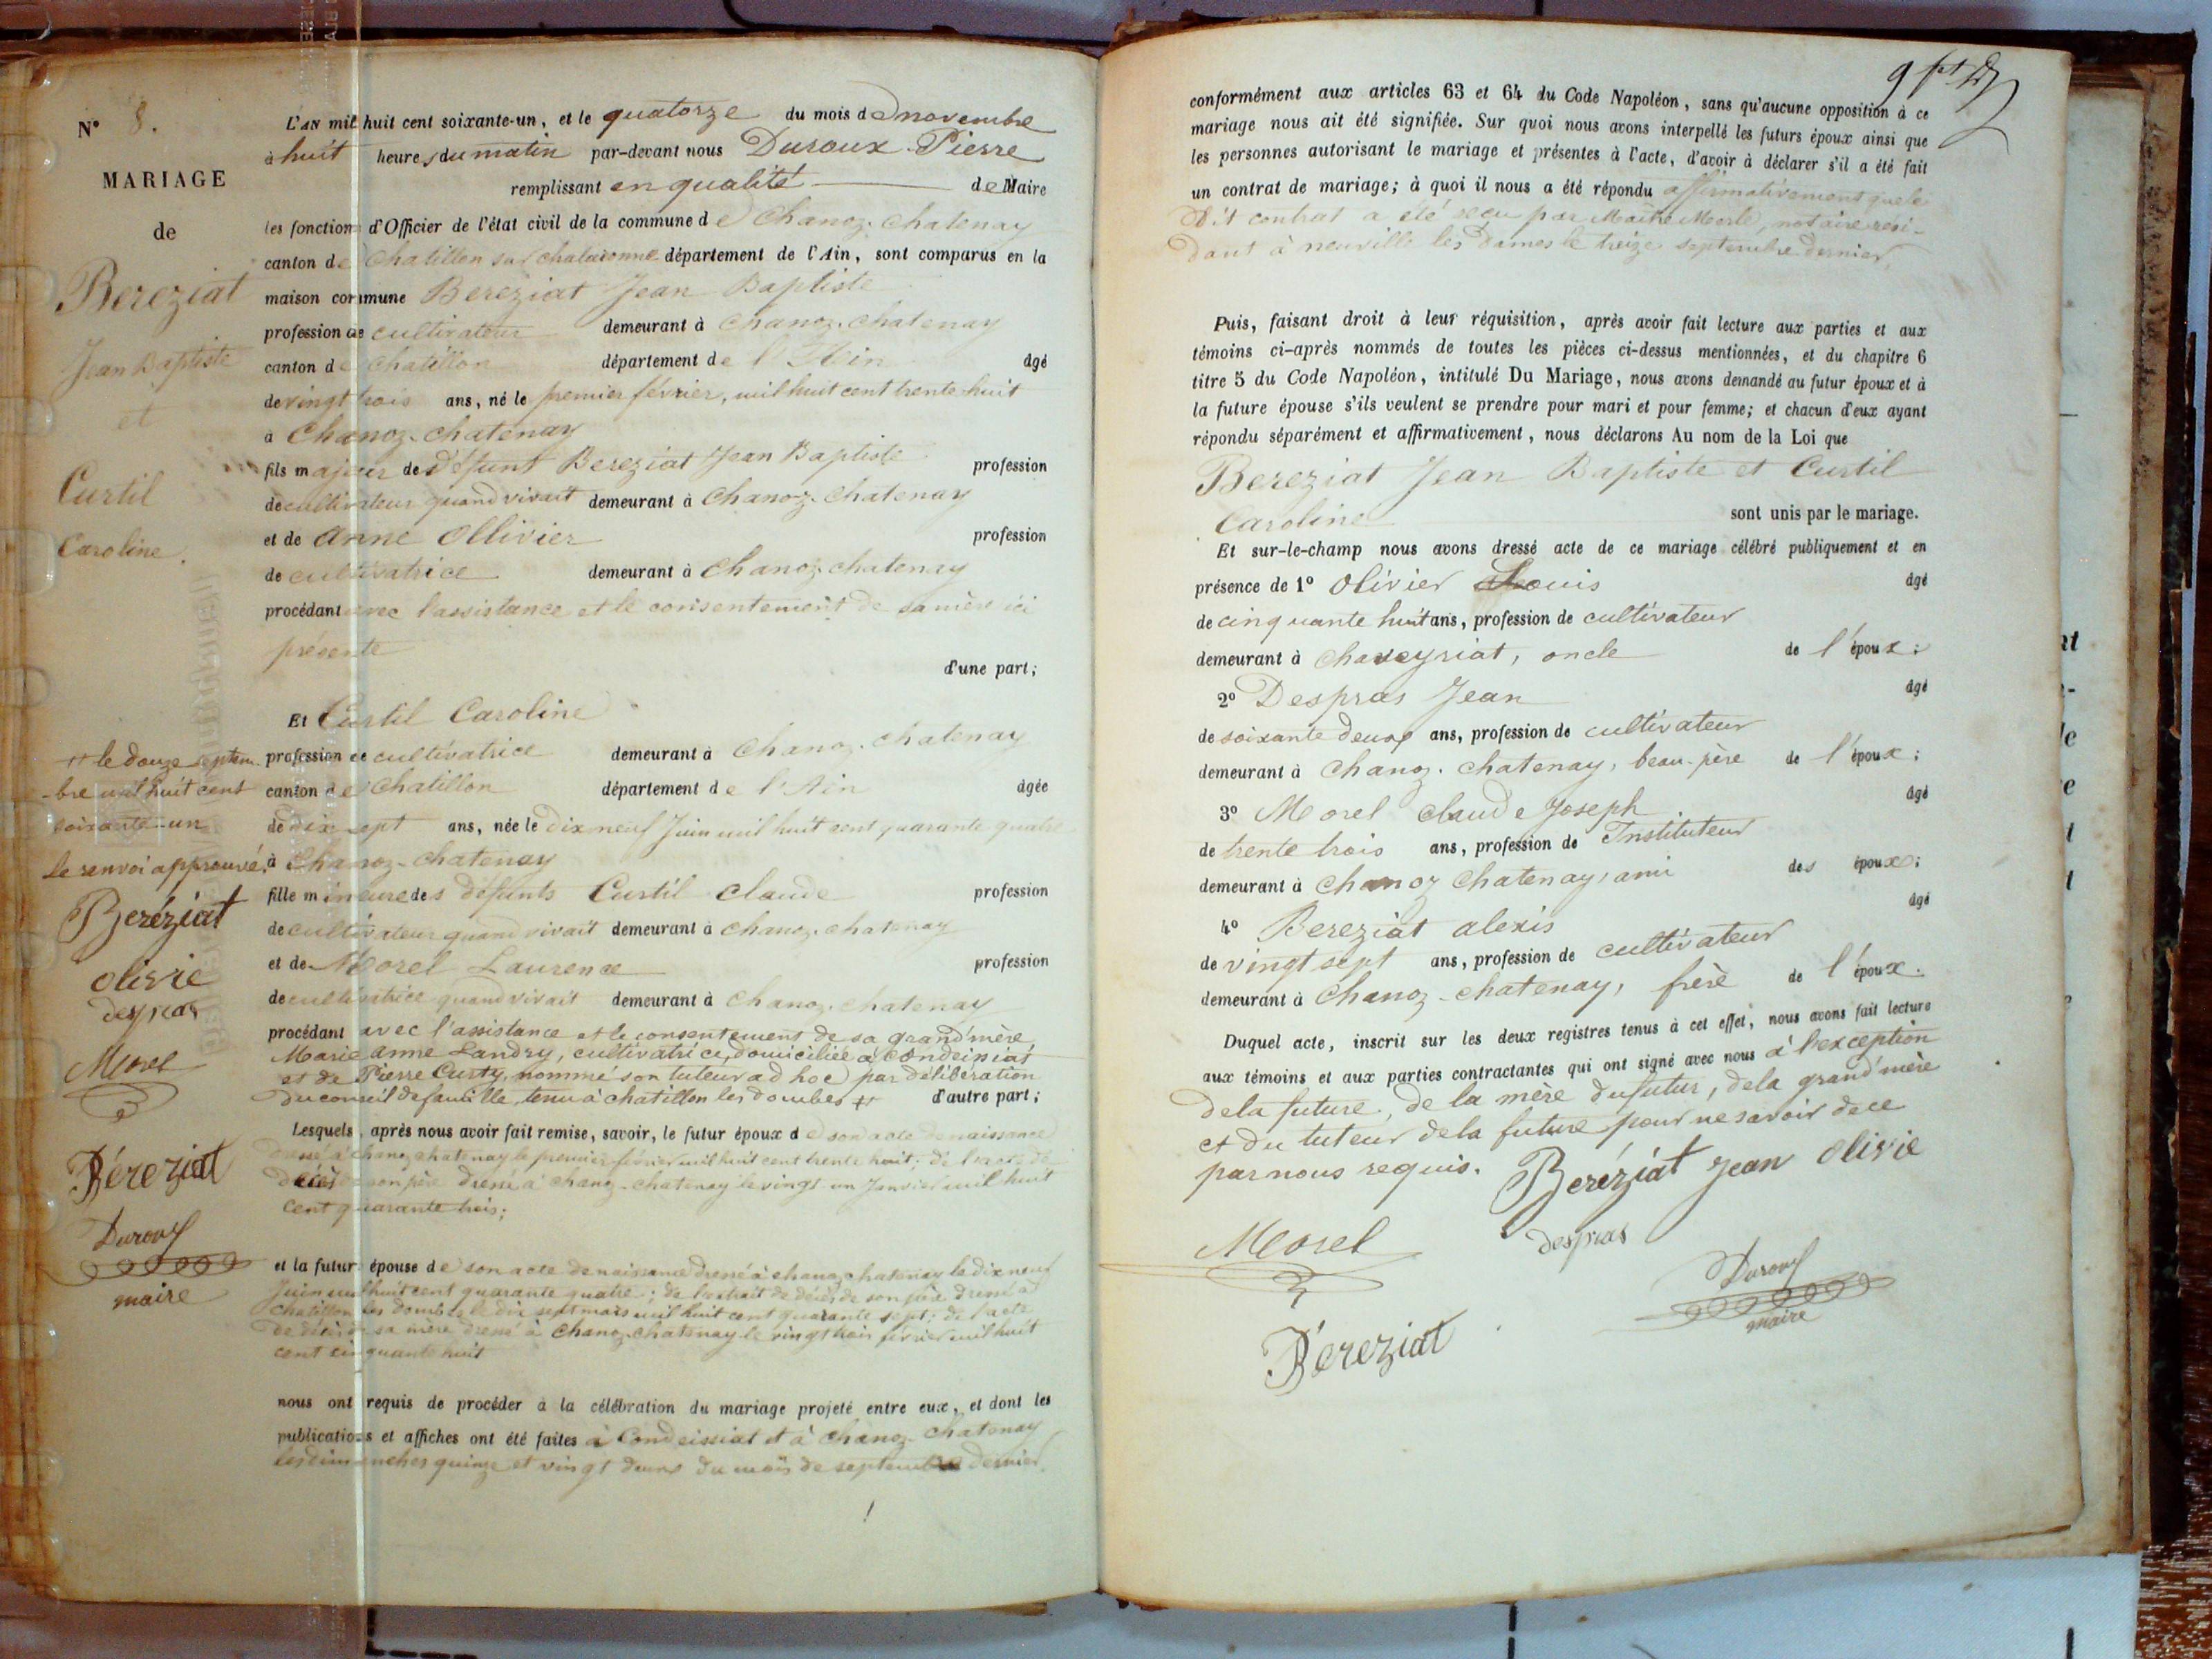 N° 8.
MARIAGE
de
Bereziat
Jean Baptiste
et
Curtil
Caroline.
L'AN mil huit cent soixante-un, et le quatorze du mois de novembre
à huit heures du matin par-devant nous Duroux Pierre
remplissant en qualité de Maire
les fonctions d'Officier de l'état civil de la commune de Chanoz-chatenay
canton de Chatillon sur chalaronne département de l'Ain, sont comparus en la
maison commune Bereziat Jean Baptiste
profession de cultivateur demeurant à Chanoz-chatenay
canton de Chatillon département de l'Ain âgé
de vingt trois ans, né le premier février, mil huit cent trente huit
à Chanoz-chatenay
fils majeur de défunt Bereziat Jean Baptiste profession
de cultivateur quand vivait demeurant à Chanoz-chatenay
et de Anne Ollivier profession
de cultivatrice demeurant à Chanoz-chatenay
procédant avec l'assistance et le consentement de sa mère ici
présente
d'une part;
Et Curtil Caroline
profession de cultivatrice demeurant à Chanoz-chatenay
canton de Chatillon département de l'Ain âgée
de dix sept ans, née le dix neuf Juin mil huit cent quarante quatre
à Chanoz-chatenay
fille mineure des défunts Curtil Claude profession
de cultivateur quand vivait demeurant à Chanoz-chatenay
et de Morel Laurence profession
de cultivatrice quand vivait demeurant à Chanoz-chatenay
procédant avec l'assistance et le consentement de sa grand'mère,
Marie Anne Landry, cultivatrice, domiciliée à Condeissiat
et de Pierre Curty, nommé son tuteur ad hoc par délibération
du conseil de famille, tenu à chatillon les dombes # d'autre part;
# le douze septem-
-bre mil huit cent
soixante-un
le renvoi approuvé.
Beréziat
olivie
despras
Morel
Béreziat
Duroux
maire
Lesquels, après nous avoir fait remise, savoir, le futur époux de son acte de naissance
dressé à Chanoz chatenay le premier février mil huit cent trente huit; de l'acte de
décès de son père dressé à chanoz-chatenay le vingt un Janvier mil huit
cent quarante trois;
et la future épouse de son acte de naissance dressé à chanoz chatenay le dix neuf
Juin mil huit cent quarante quatre; de l'extrait de décès de son père dressé à
chatillon les dombes le dix sept mars mil huit cent quarante sept; de l'acte
de décès de sa mère dressé à Chanoz-chatenay le vingt trois février mil huit
cent cinquante huit
nous ont requis de procéder à la célébration du mariage projeté entre eux, et dont les
publications et affiches ont été faites à Condeissiat et à Chanoz-chatenay
les dimanches quinze et vingt deux du mois de septembre dernier
conformément aux articles 63 et 64 du Code Napoléon, sans qu'aucune opposition à ce
mariage nous ait été signifiée. Sur quoi nous avons interpellé les futurs époux ainsi que
les personnes autorisant le mariage et présentes à l'acte, d'avoir à déclarer s'il a été fait
un contrat de mariage; à quoi il nous a été répondu affirmativement que le
dit contrat a été reçu par Maître Merle, notaire rési-
dant à neuville les Dames le treize septembre dernier,
Puis, faisant droit à leur réquisition, après avoir fait lecture aux parties et aux
témoins ci-après nommés de toutes les pièces ci-dessus mentionnées, et du chapitre 6
titre 5 du Code Napoléon, intitulé Du Mariage, nous avons demandé au futur époux et à
la future épouse s'ils veulent se prendre pour mari et pour femme; et chacun d'eux ayant
répondu séparément et affirmativement, nous déclarons Au nom de la Loi que
Bereziat Jean Baptiste et Curtil
Caroline sont unis par le mariage.
Et sur-le-champ nous avons dressé acte de ce mariage célébré publiquement et en
présence de 1° Olivier Louis âgé
de cinquante huit ans, profession de cultivateur
demeurant à Chaveyriat, oncle de l'époux;
2° Despras Jean âgé
de soixante deux ans, profession de cultivateur
demeurant à Chanoz-chatenay, beau-père de l'époux;
3° Morel Claude Joseph âgé
de trente trois ans, profession de Instituteur
demeurant à Chanoz Chatenay, ami des époux;
4° Bereziat alexis âgé
de vingt sept ans, profession de cultivateur
demeurant à Chanoz-chatenay, frère de l'époux.
Duquel acte, inscrit sur les deux registres tenus à cet effet, nous avons fait lecture
aux témoins et aux parties contractantes qui ont signé avec nous à l'exception
de la future, de la mère du futur, de la grand'mère
et du tuteur de la future pour ne savoir de ce
par nous requis. Beréziat Jean olivie
Morel despras
Duroux
maire
Béreziat